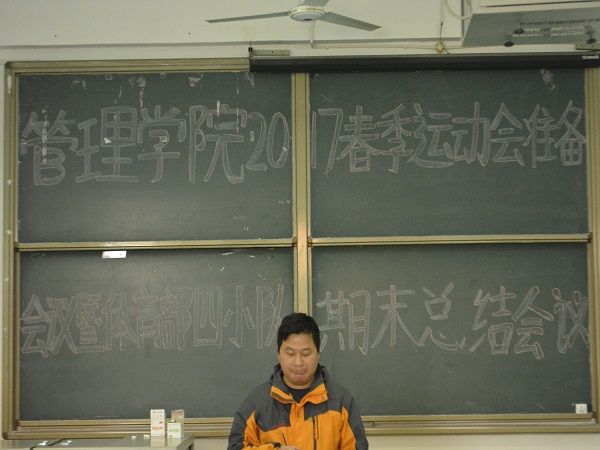 管理学院2017春季运动会准备
会议暨体育部四小队期末总结会议